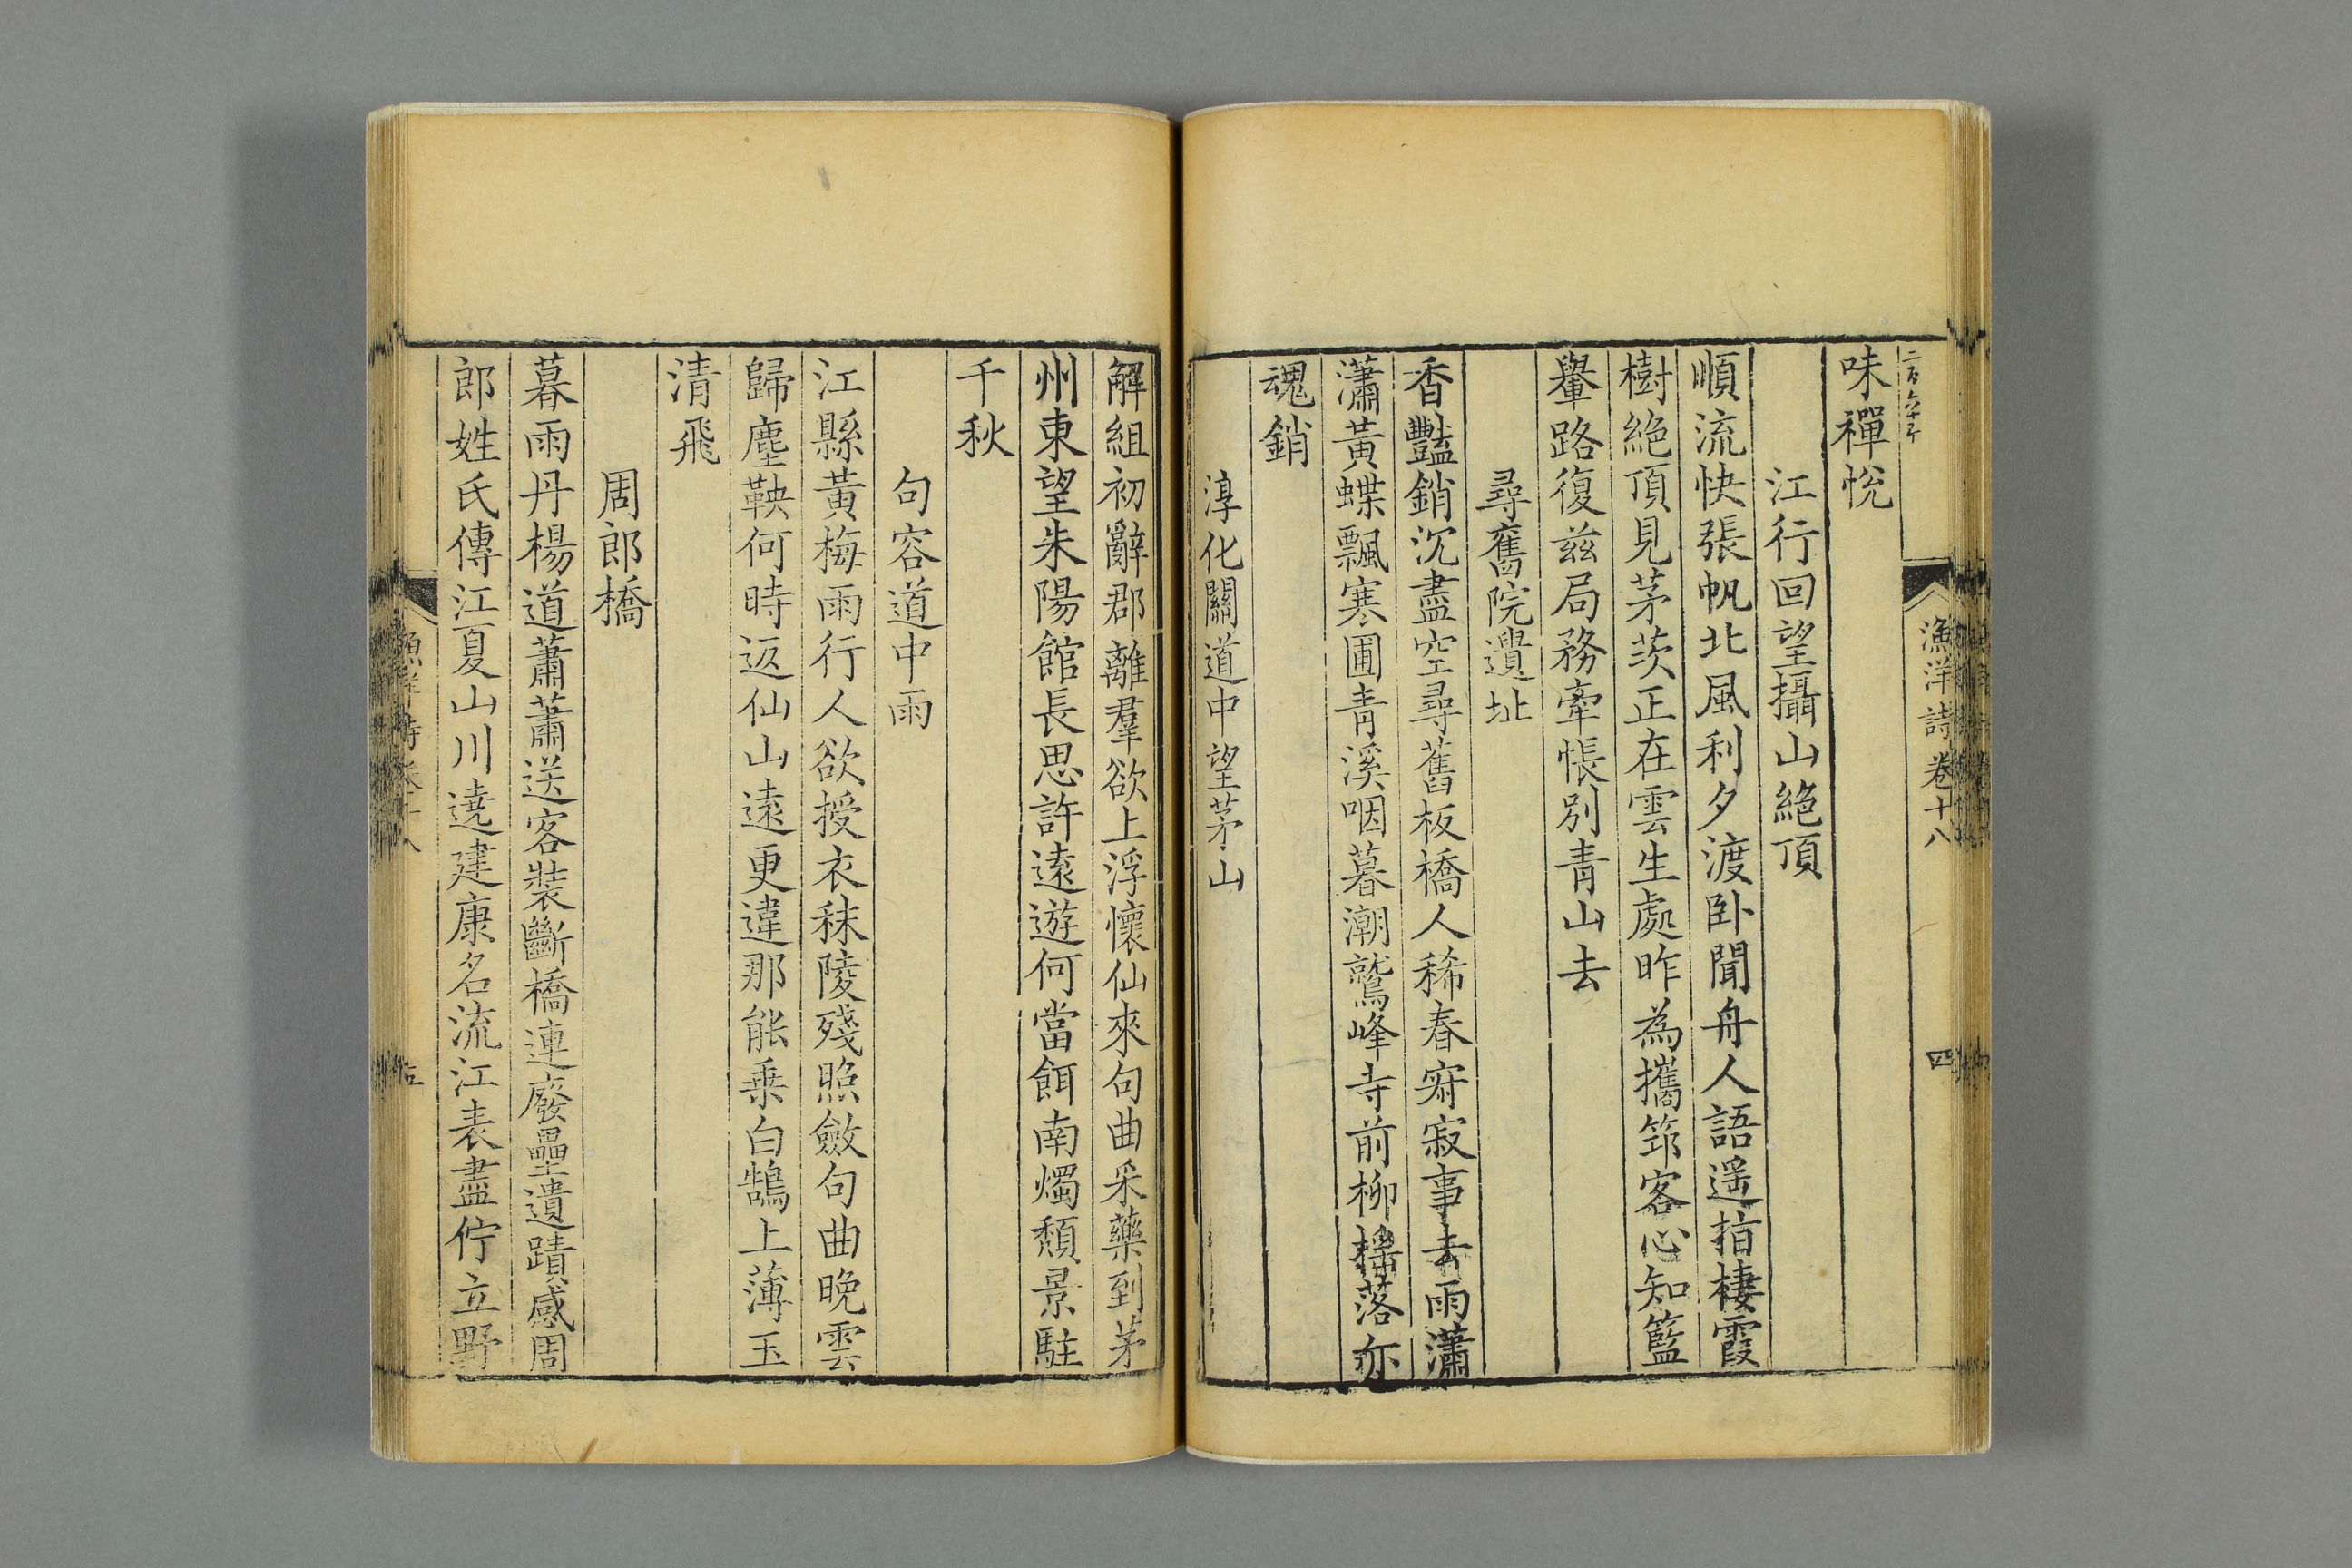 漁洋詩卷十八
四
味禪悅
江行回望攝山絕頂
順流快張帆北風利夕渡卧聞舟人語遥指棲霞
樹絕頂見茅茨正在雲生處昨為攜筇客心知籃
轝路復兹局務牽悵別青山去
尋舊院遺址
香豔銷沉盡空尋舊板橋人稀春寂寂事去雨瀟
瀟黃蝶飄寒圃青溪咽暮潮鷲峰寺前柳摇落亦
魂銷
淳化關道中望茅山
解組初辭郡離羣欲上浮懷仙來句曲采藥到茅
州東望朱陽館長思許遠遊何當餌南燭頹景駐
千秋
句容道中雨
江縣黃梅雨行人欲授衣秣陵殘照斂句曲晚雲
歸塵鞅何時返仙山遠更違那能乗白鵠上薄玉
清飛
周郎橋
暮雨丹楊道蕭蕭送客裝斷橋連廢壘遺蹟感周
郎姓氏傳江夏山川遶建康名流江表盡佇立野
漁洋詩卷十八
五